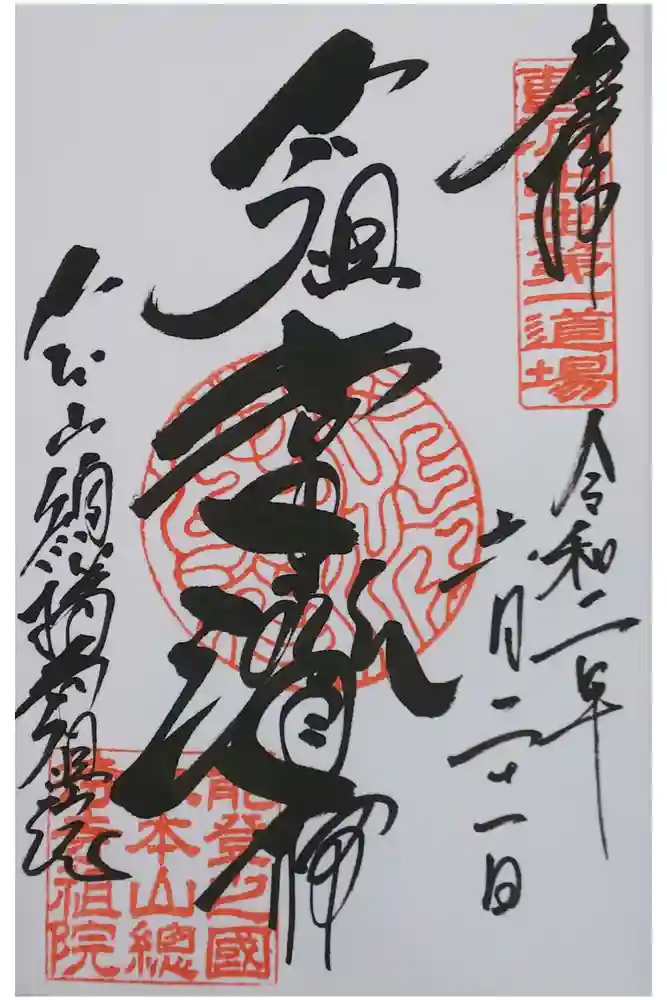 奉拝
曹洞出世第一道場
令和二年
十一月二十一日
太祖常濟大師
大本山總持寺祖院
能登之國
大本山總
持寺祖院